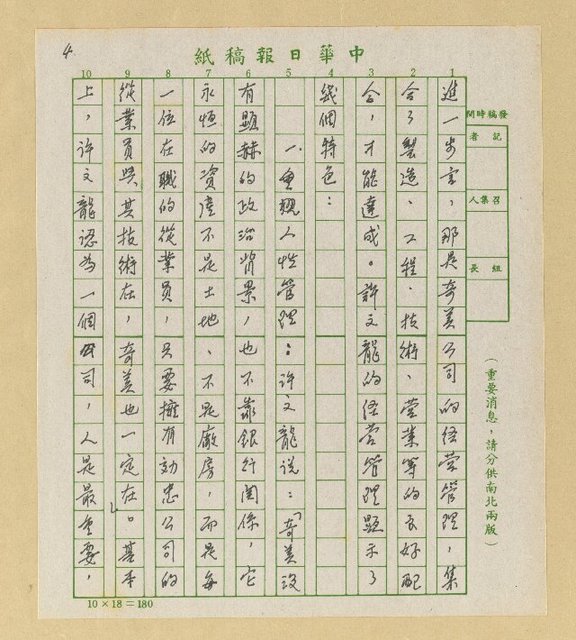 4
中華日報稿紙
發稿時間
記者
召集人
組長
(重要消息,請分供南北兩版)
1
2
3
4
5
6
7
8
9
10
進一步言,那是奇美公司的經營管理,集
合了製造、工程、技術、營業等的良好配
合,才能達成。許文龍的經營管理顯示了
幾個特色:
一、重視人性管理:許文龍說:「奇美沒
有顯赫的政治背景,也不靠銀行關係,它
永恆的資產不是土地、不是廠房,而是每
一位在職的從業員,只要擁有効忠公司的
從業員與其技術在,奇美也一定在。」基本
上,許文龍認為一個公司,人是最重要,
10×18=180